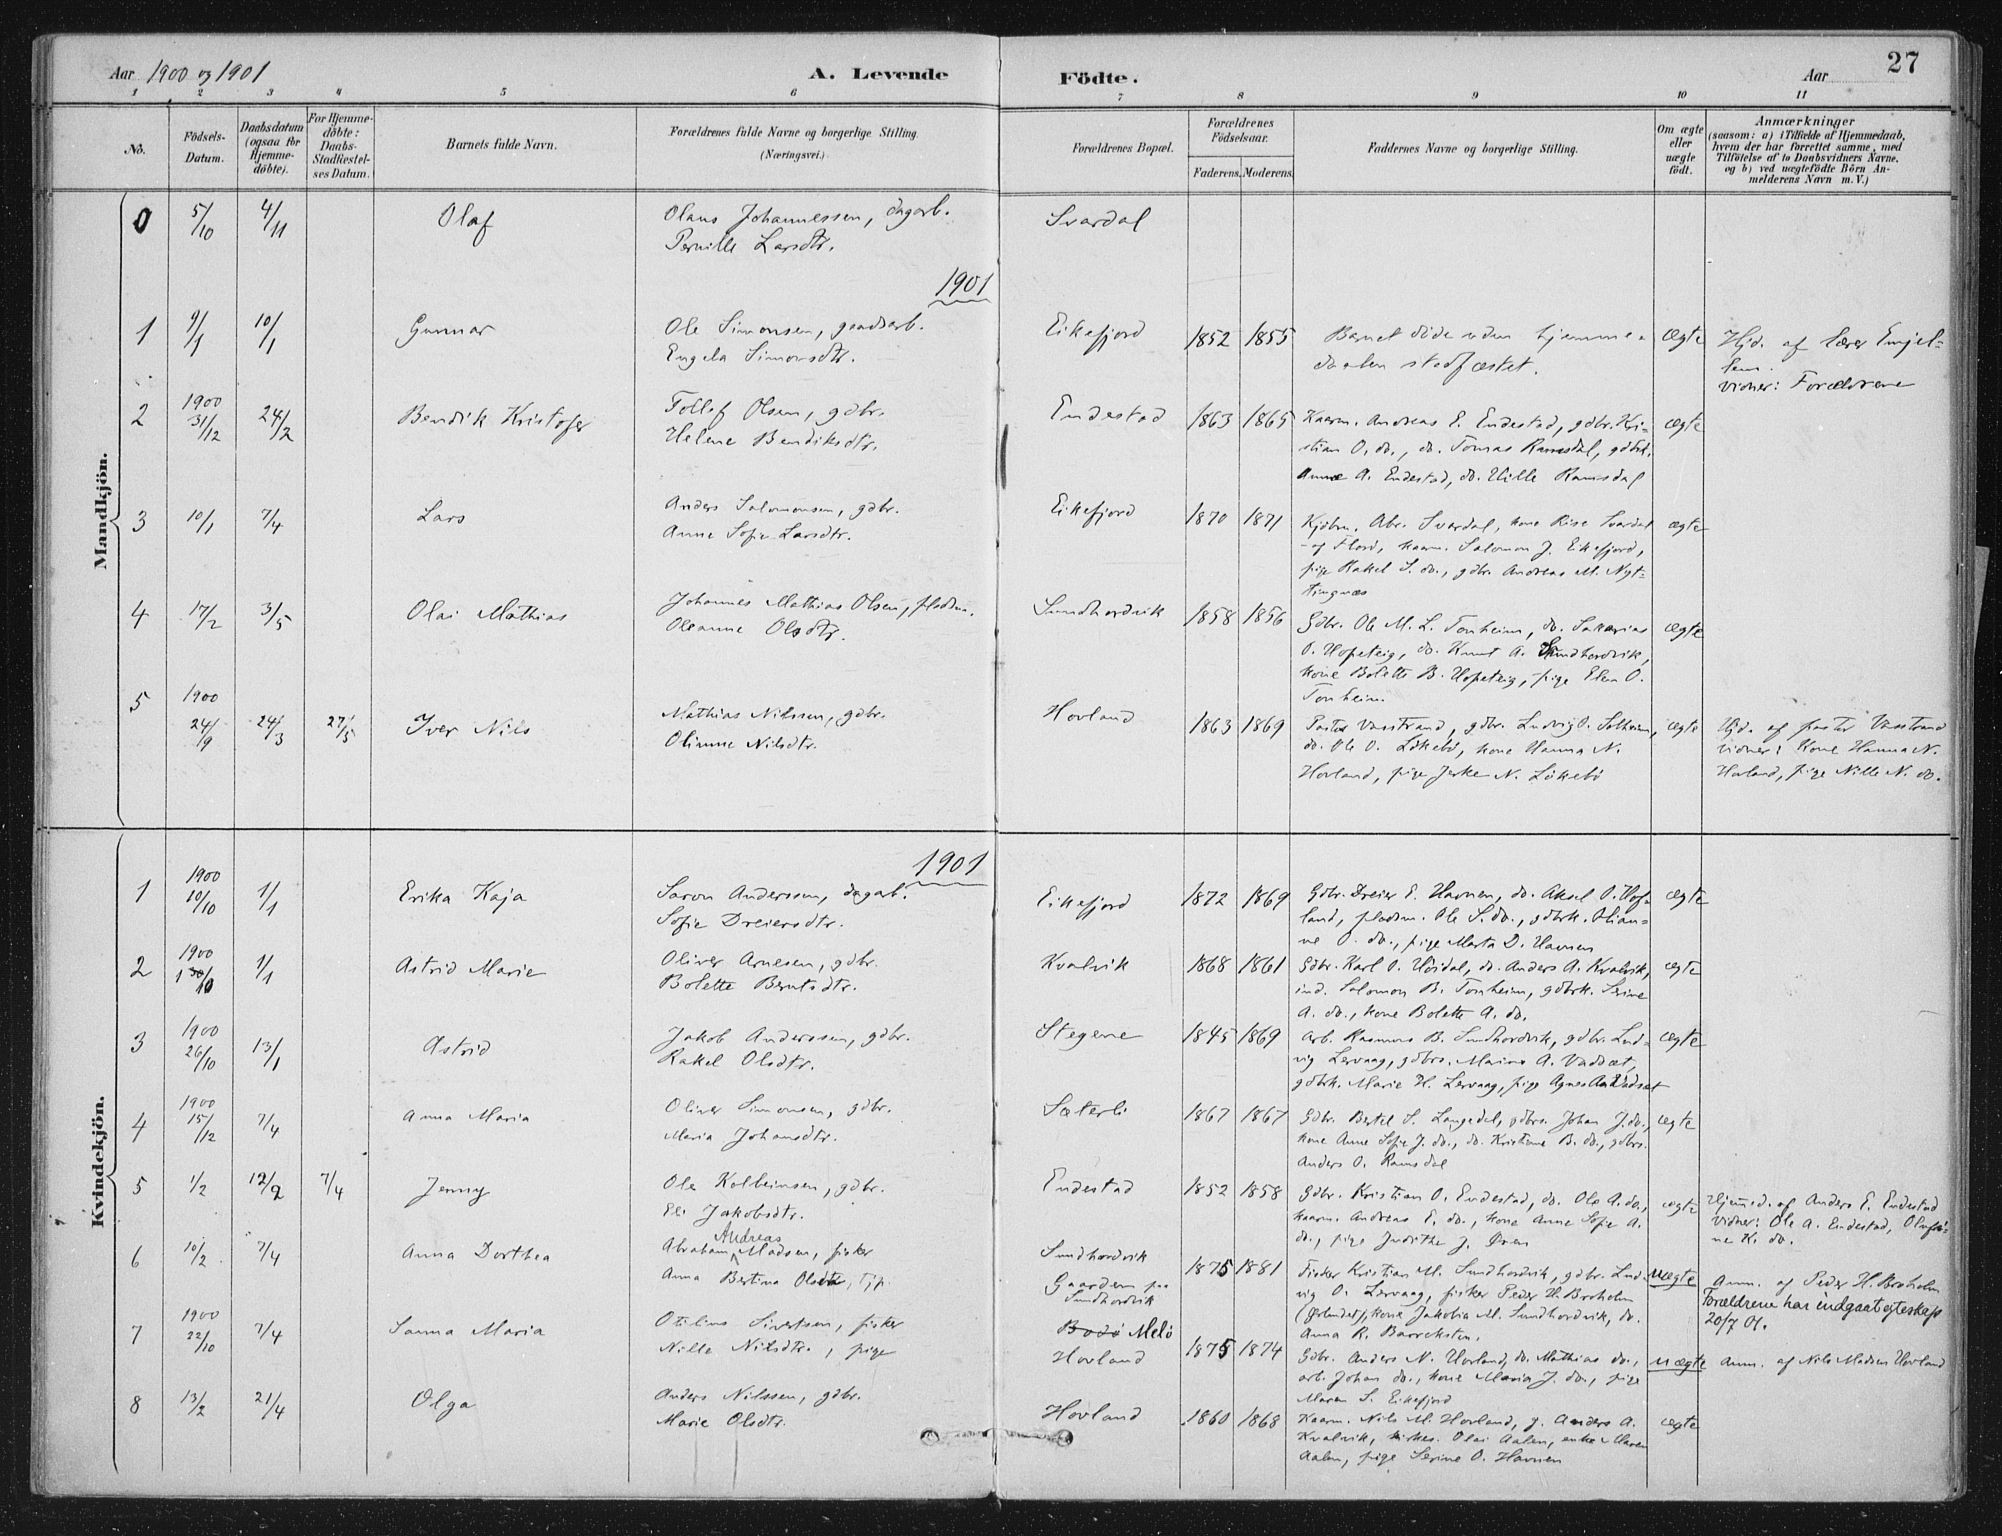 Aar 1900 og 1901
A. Levende
Födte.
Aar
27
1 2 3 4 5 6 7 8 9 10 11
No.
Födsels-
Datum.
Daabsdatum
(ogsaa for
Hjemme-
döbte).
For Hjemme-
döbte:
Daabs-
Stadfæstel-
ses Datum.
Barnets fulde Navn.
Forældrenes fulde Navne og borgerlige Stilling.
(Næringsvei.)
Forældrenes Bopæl.
Forældrenes
Födselsaar.
Faderens. Moderens.
Faddernes Navne og borgerlige Stilling.
Om ægte
eller
uægte
födt.
Anmærkninger
(saasom: a) i Tilfælde af Hjemmedaab,
hvem der har forrettet samme, med
Tilföielse af to Daabsvidners Navne,
og b) ved uægtefödte Börn An-
melderens Navn m. V.)
Mandkjön.
0 5/10 4/11 Olaf
Olaus Johannessen, dagarb.
Pernille Larsdtr.
Svardal
1901
1 9/1 10/1 Gunnar
Ole Simonsen, gaardsarb.
Engela Simonsdtr.
Eikefjord 1852 1855
Barnet döde uden hjemme-
daaben stadfæstet.
ægte
Hjd. af lærer Engel-
sen.
Vidner: Forældrene
2 1900 31/12 24/2 Bendik Kristofer
Tollef Olsen, gdbr.
Helene Bendiksdtr.
Endestad 1863 1865
Kaarm. Andreas E. Endestad, gdbr. Kri-
stian O. do., do. Tomas Ramsdal, gdbrk.
Anne A. Endestad, do. Nille Ramsdal
ægte
3 10/1 7/4 Lars
Anders Salomonsen, gdbr.
Anne Sofie Larsdtr.
Eikefjord 1870 1871
Kjöbm. Abr. Svardal, kone Rise Svardal
af Florö, kaarm. Salomon J. Eikefjord,
pige Rakel S. do., gdbr. Andreas M. Nyt-
tingnæs
ægte
4 17/2 3/5 Olai Mathias
Johannes Mathias Olsen, pladsm.
Oleanne Olsdtr.
Sundhordvik 1858 1856
Gdbr. Ole M. L. Tonheim, do. Sakarias
O. Hopeteig, do. Knut A. Sundhordvik,
kone Bolette B. Hopeteig, pige Elen O.
Tonheim.
ægte
5 1900 24/9 24/3 27/5 Iver Nils
Mathias Nilssen, gdbr.
Olianne Nilsdtr.
Hovland 1863 1869
Pastor Vasstrand, gdbr. Ludvig O. Solheim,
do. Ole O. Lökebö, kone Hanna N.
Hovland, pige N. Lökebö
ægte
Hjd. af pastor Vasstrand
vidner: Kone Hanna N.
Hovland, pige Nille N. do.
Kvindekjön.
1901
1 1900 10/10 1/1 Erika Kaja
Saron Anderssen, dagarb.
Sofie Dreiersdtr.
Eikefjord 1872 1869
Gdbr. Dreier E. Havnen, do. Aksel O. Hov-
land, pladsm. Ole S. do., gdbrk. Olian-
ne O. do., pige Marta D. Havnen
ægte
2 1900 1/10 1/1 Astrid Marie
Oliver Arnesen, gdbr.
Bolette Berntsdtr.
Kvalvik 1868 1861
Gdbr. Karl O. Höidal, do. Anders A. Kvalvik,
ind. Salomon B. Tonheim, gdbrk. Serine
A. do., kone Bolette A. do.
ægte
3 1900 26/10 13/1 Astrid
Jakob Anderssen, gdbr.
Rakel Olsdtr.
Stegene 1845 1869
Arb. Rasmus B. Sundhordvik, gdbr. Lud-
vig Lervaag, gdbrs. Marius A. Vadsæt,
gdbrk. Marie H. Lervaag, pige Agnes A. Vadsæt
ægte
4 1900 15/12 7/4 Anna Maria
Oliver Simonsen, gdbr.
Maria Johansdtr.
Sæterli 1867 1867
Gdbr. Bertel S. Langedal, gdbrs. Johan J. do.,
kone Anne Sofie J. do., do. Kristiane B. do., gdbrs.
Anders O. Ramsdal
ægte
5 1/2 12/2 7/4 Jenny
Ole Kolbeinsen, gdbr.
Eli Jakobsdtr.
Endestad 1852 1858
Gdbr. Kristian O. Endestad, do. Ole A. do.,
kaarm. Andreas E. do., kone Anne Sofie A.
do., pige Judithe J. Ören
ægte
Hjemmed. af Anders E. Endestad
vidner: Ole A. Endestad, Olufi-
ne K. do.
6 10/2 7/4 Anna Dorthea
Andreas
Abraham Madsen, fisker
Anna Bertina Olsdtr, tjp.
Sundhordvik
Gaarden paa
Sundhordvik
1875 1881
Fisker Kristian M. Sundhordvik, gdbr. Lud-
vig O. Lervaag, fisker Peder H. Broholm
(Örlandet), kone Jakobia M. Sundhordvik, do.
Anna R. Barreksten.
uægte
Anm. af Peder H. Broholm
Forældrene har indgaat egteskap
20/7 01.
7 1900 22/10 7/4 Sanna Maria
Otelius Sivertsen, fisker
Nille Nilsdtr., pige
Bodö Melö
Hovland
1875 1874
Gdbr. Anders N. Hovland, do. Mathias do.,
arb. Johan do., kone Maria J. do., pige
Maren S. Eikefjord
uægte
Anm. af Nils Madsen Hovland
8 13/2 21/4 Olga
Anders Nilssen, gdbr.
Marie Olsdtr.
Hovland 1860 1868
Kaarm. Nils M. Hovland, g. Anders A.
Kvalvik, Olai Aalen, enke Maren
Aalen, pige Serine O. Havnen
ægte